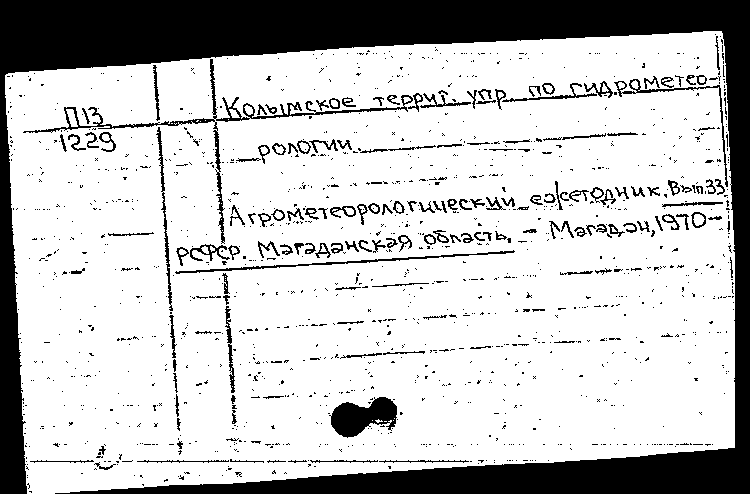 П13
1229
Колымское террит. упр по гидрометео-
рологии.
Агрометеорологический ежегодник. Вып.33
РСФСР. Магаданская область. - Магадан, 1970-